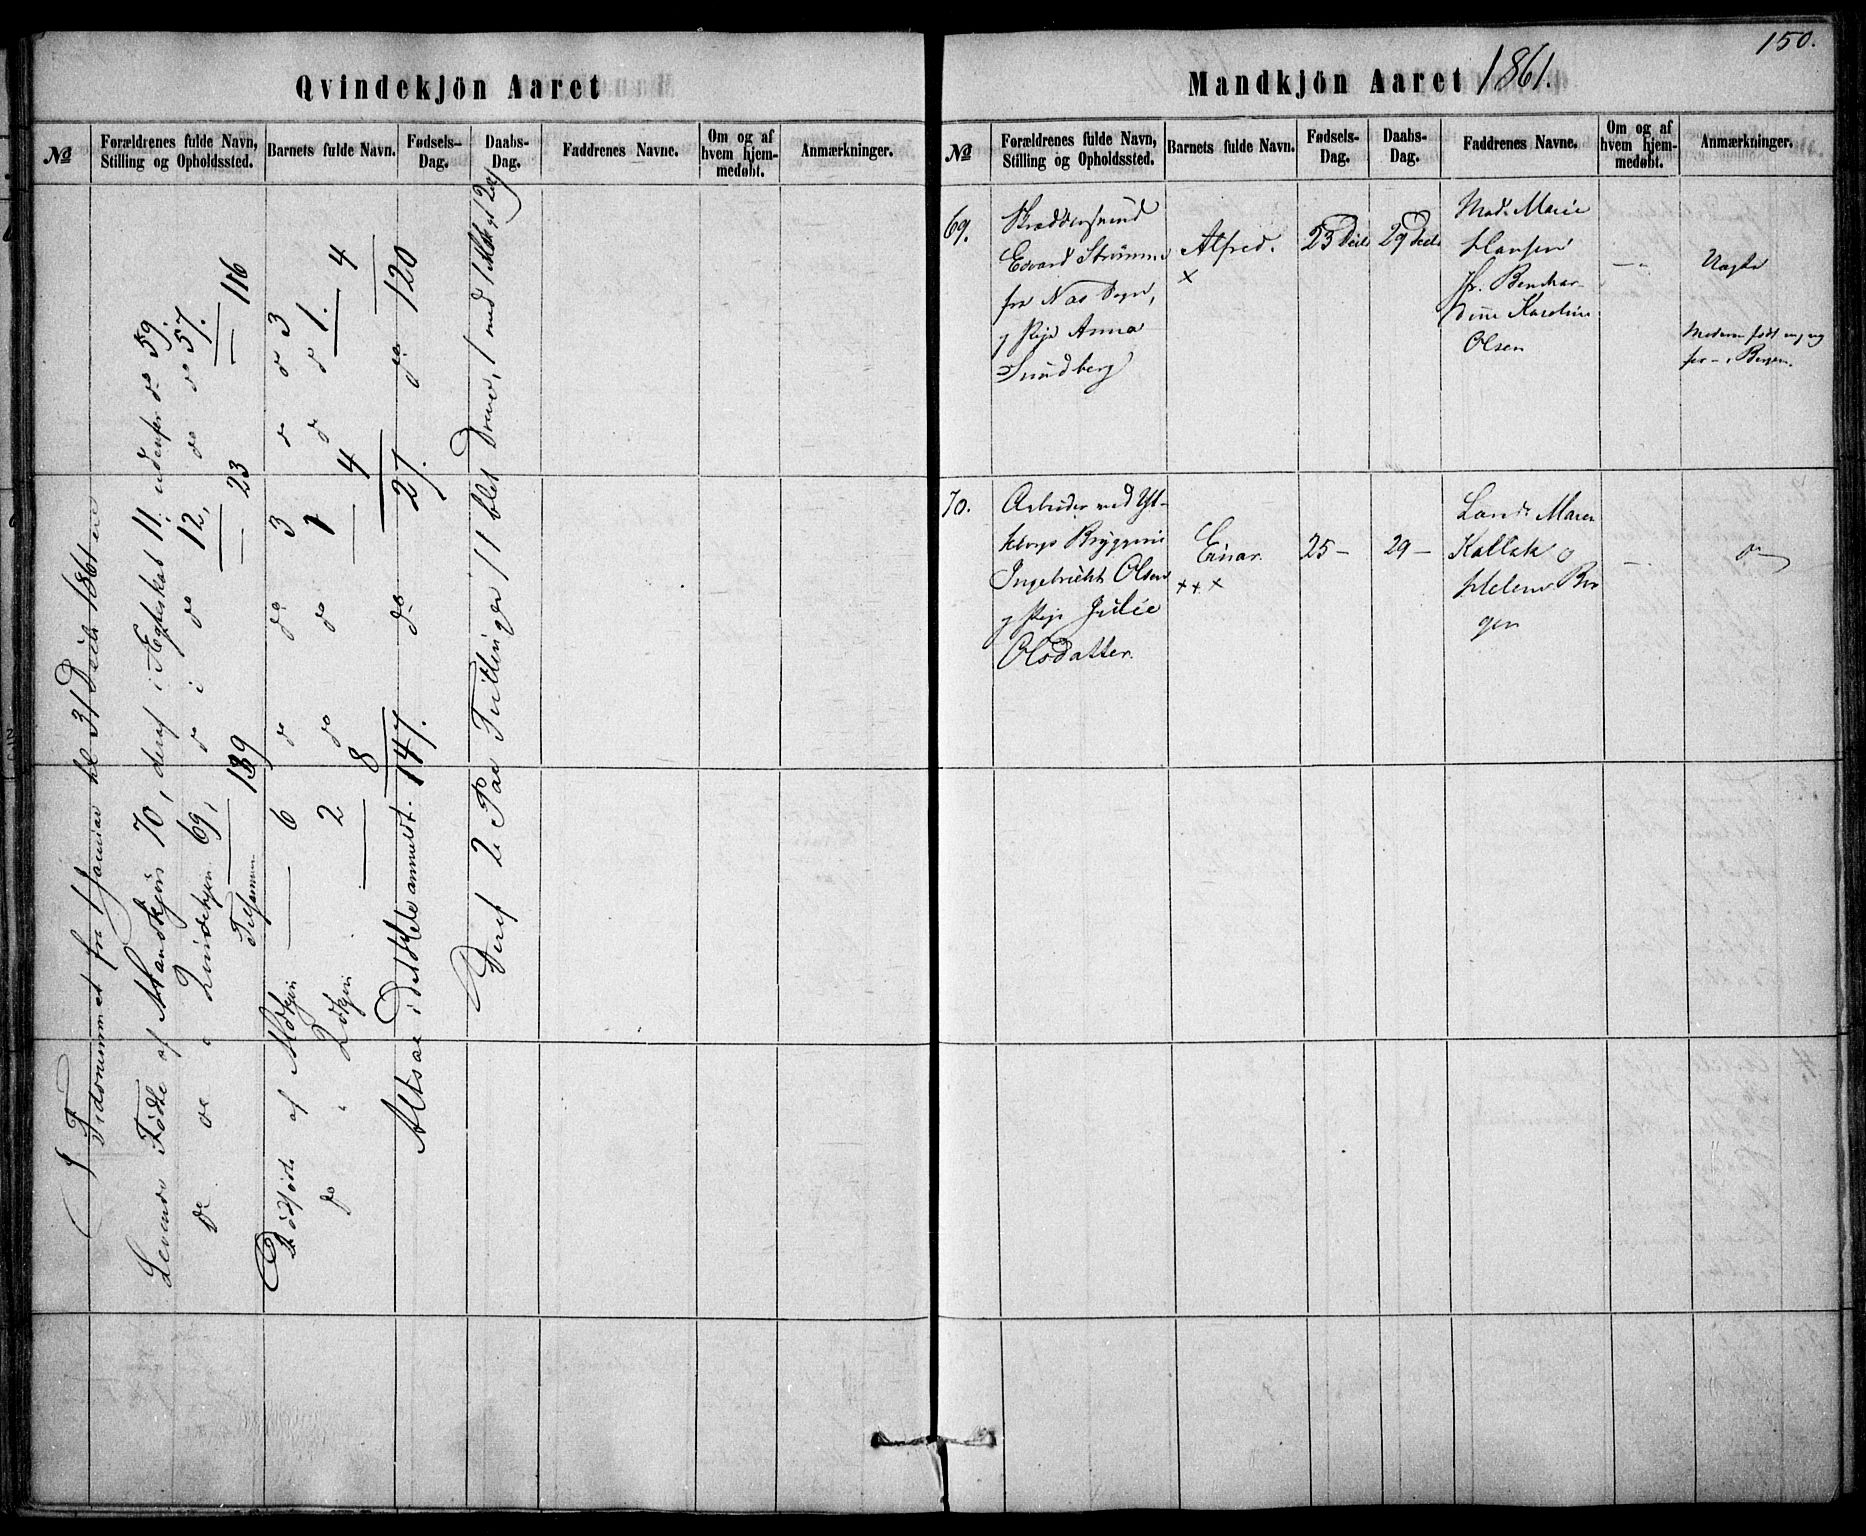 Qvindekjön Aaret
No
Forældrenes fulde Navn, Stilling og Opholdssted.
Barnets fulde Navn.
Fødsels-Dag.
Daabs-Dag.
Faddrenes Navne.
Om og af hvem hjem-medøbt.
Anmærkninger.
I Tidsrummet fra 1 Januar til 31 Decbr 1861 ere
Levende Fødte af Mandkjøn 70, deraf i Ægteskab 11. udenfor do 59.
do do " Qvindekjøn 69, do i do 12, do do 57.
Tilsammen 139 — 23 — 116
Dødfødte af Mdkjøn — 6 do do 3 do do 3
do " Qdkjøn 2 do do 1 do do 1.
8 — 4 4
Altsaa i det Hele anmeldt. 147. do 27. do 120
Deraf 2 Par Tvillinger
150.
Mandkjön Aaret 1861.
No
Forældrenes fulde Navn, Stilling og Opholdssted.
Barnets fulde Navn.
Fødsels-Dag.
Daabs-Dag.
Faddrenes Navne.
Om og af hvem hjem-medøbt.
Anmærkninger.
69.
Skræddersvend
Edvard Strømme
fra Næs Sogn,
og Pige Anna
Sundberg
Alfred.
×
23 Decbr
29 Decbr
Mad. Marie
Hansen
Jfr. Benhar-
dine Karoline
Olsen
—
Uægte
Moderen født og
i Bergen.
70.
Arbeider ved Yt-
teborgs Bryggeri
Ingebricht Olsen
og Pige Julie
Olsdatter.
Einar.
×××
25 —
29 —
Maren
Kallak og
Helene Bir
gen
—
do